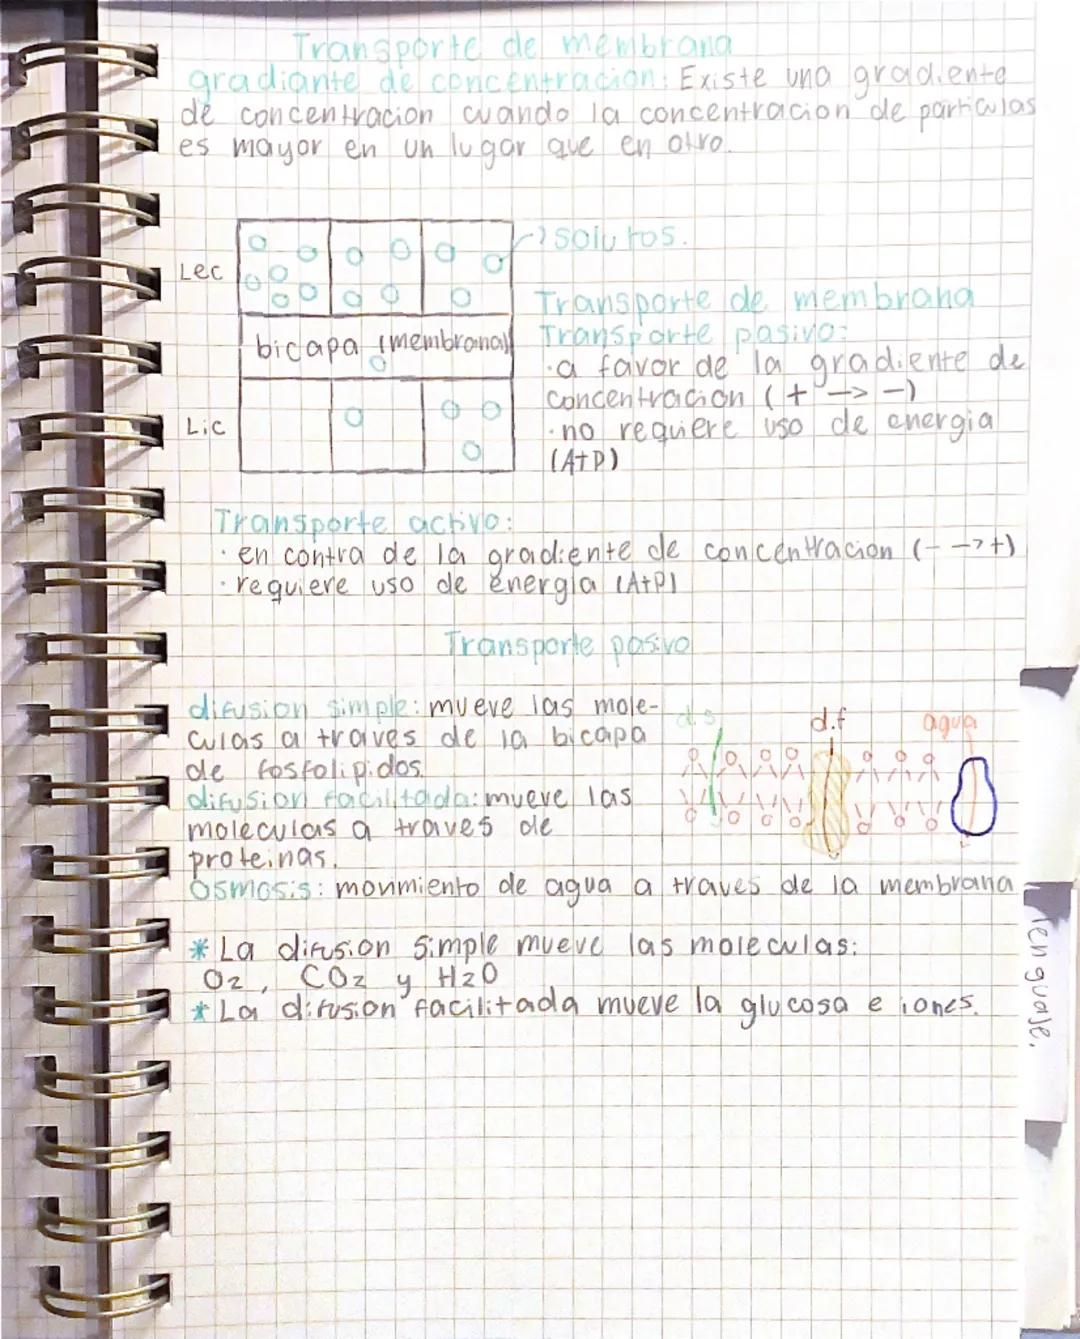 Transporte de membrana
gradiante de concentracion: Existe una gradiente
de concentracion cuando la concentracion de particulas
es mayor en un lugar que en otro.
solutos.
Lec
bicapa (membrana)
Lic
Transporte de membrana
Transporte pasivo:
·a favor de la gradiente de
concentracion (+ -> -)
·no requiere uso de energia
(AtP)
Transporte activo:
· en contra de la gradiente de concentracion (- -> +)
· requiere uso de energia (AtP)
Transporte pasivo
difusion simple: mueve las mole-
culas a traves de la bicapa
de fosfolipidos.
difusion facilitada: mueve las
moleculas a traves de
proteinas.
d.s
d.f
agua
Osmosis: movimiento de agua a traves de la membrana
* La difusion simple mueve las moleculas:
O2, CO2 y H2O
* La difusion facilitada mueve la glucosa e iones.
lenguaje.